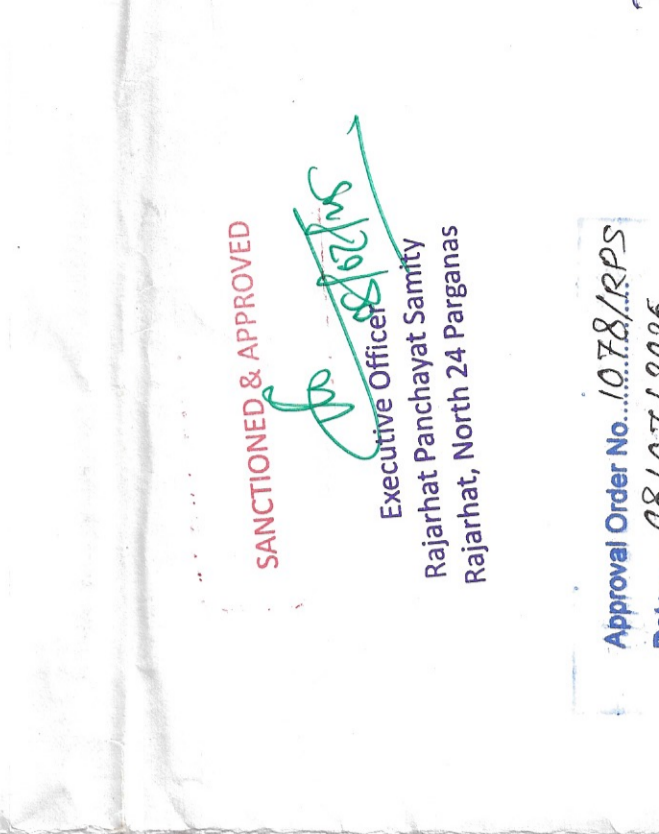 SANCTIONED & APPROVED
08/07/25
Executive Officer
Rajarhat Panchayat Samity
Rajarhat, North 24 Parganas
Approval Order No. 1078/RPS